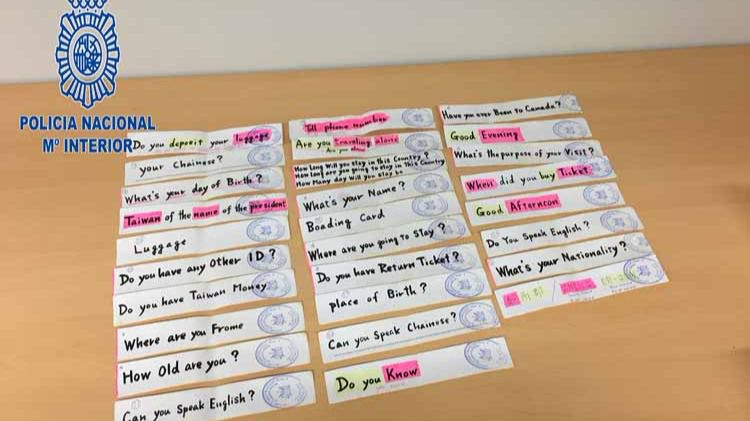 POLICIA NACIONAL
Mº INTERIOR
Do you deposit your luggage
your Chainese?
What's your day of Birth?
Taiwan of the name of the president
Luggage
Do you have any Other ID?
Do you have Taiwan Money
Where are you Frome
How Old are you?
Can you Speak English?
Tell phone number
Are you traveling alone
How Long Will you stay in this Country?
How Long are you going to stay in this Country
How Many day Will you stay
What's your Name?
Boading Card
Where are you going to Stay?
Do you have Return Ticket?
place of Birth?
Can you Speak Chainose?
Do you Know
Have you ever Been to Canada?
Good Evening
What's the purpose of your Visit?
When did you buy Ticket
Good Afternoon
Do You Speak English?
What's your Nationality?